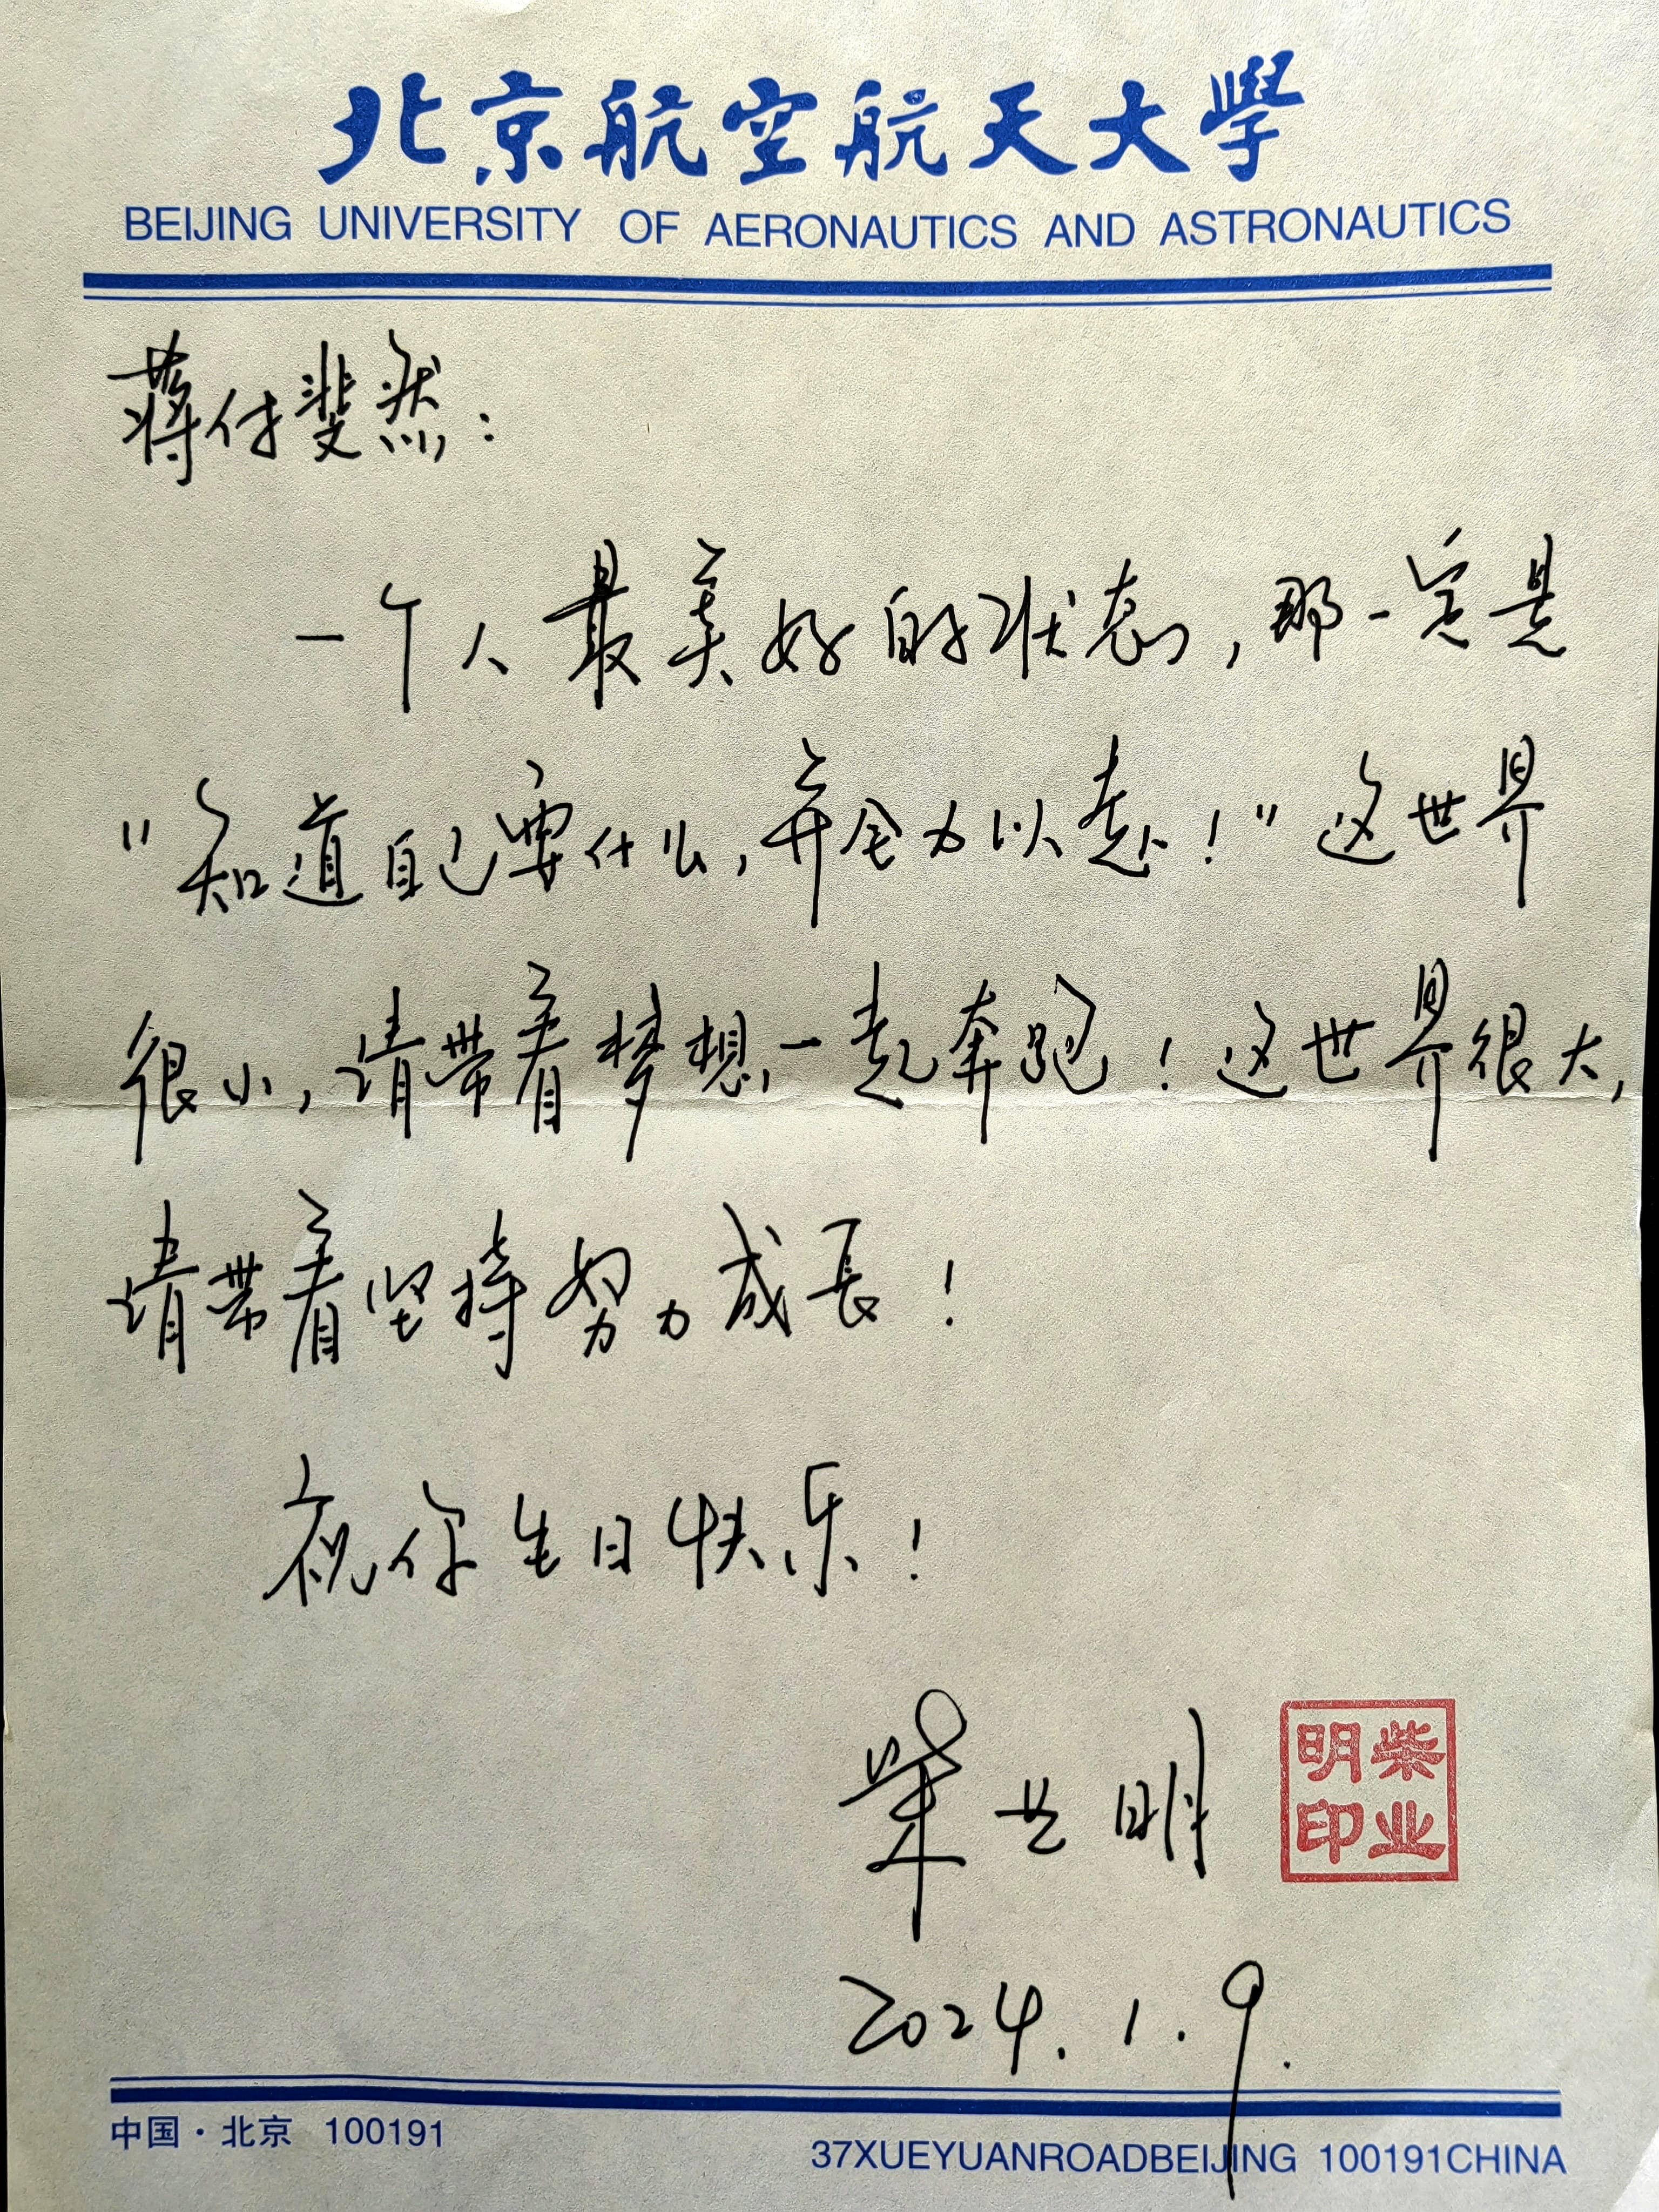 北京航空航天大學
BEIJING UNIVERSITY OF AERONAUTICS AND ASTRONAUTICS
蒋付斐然：
一个人最美好的状态，那一定是
“知道自己要什么，并全力以赴！”这世界
很小，请带着梦想一起奔跑！这世界很大，
请带着坚持努力成长！
祝你生日快乐！
柴业明
柴业
明印
2024.1.9.
中国·北京 100191
37XUEYUANROADBEIJING 100191CHINA